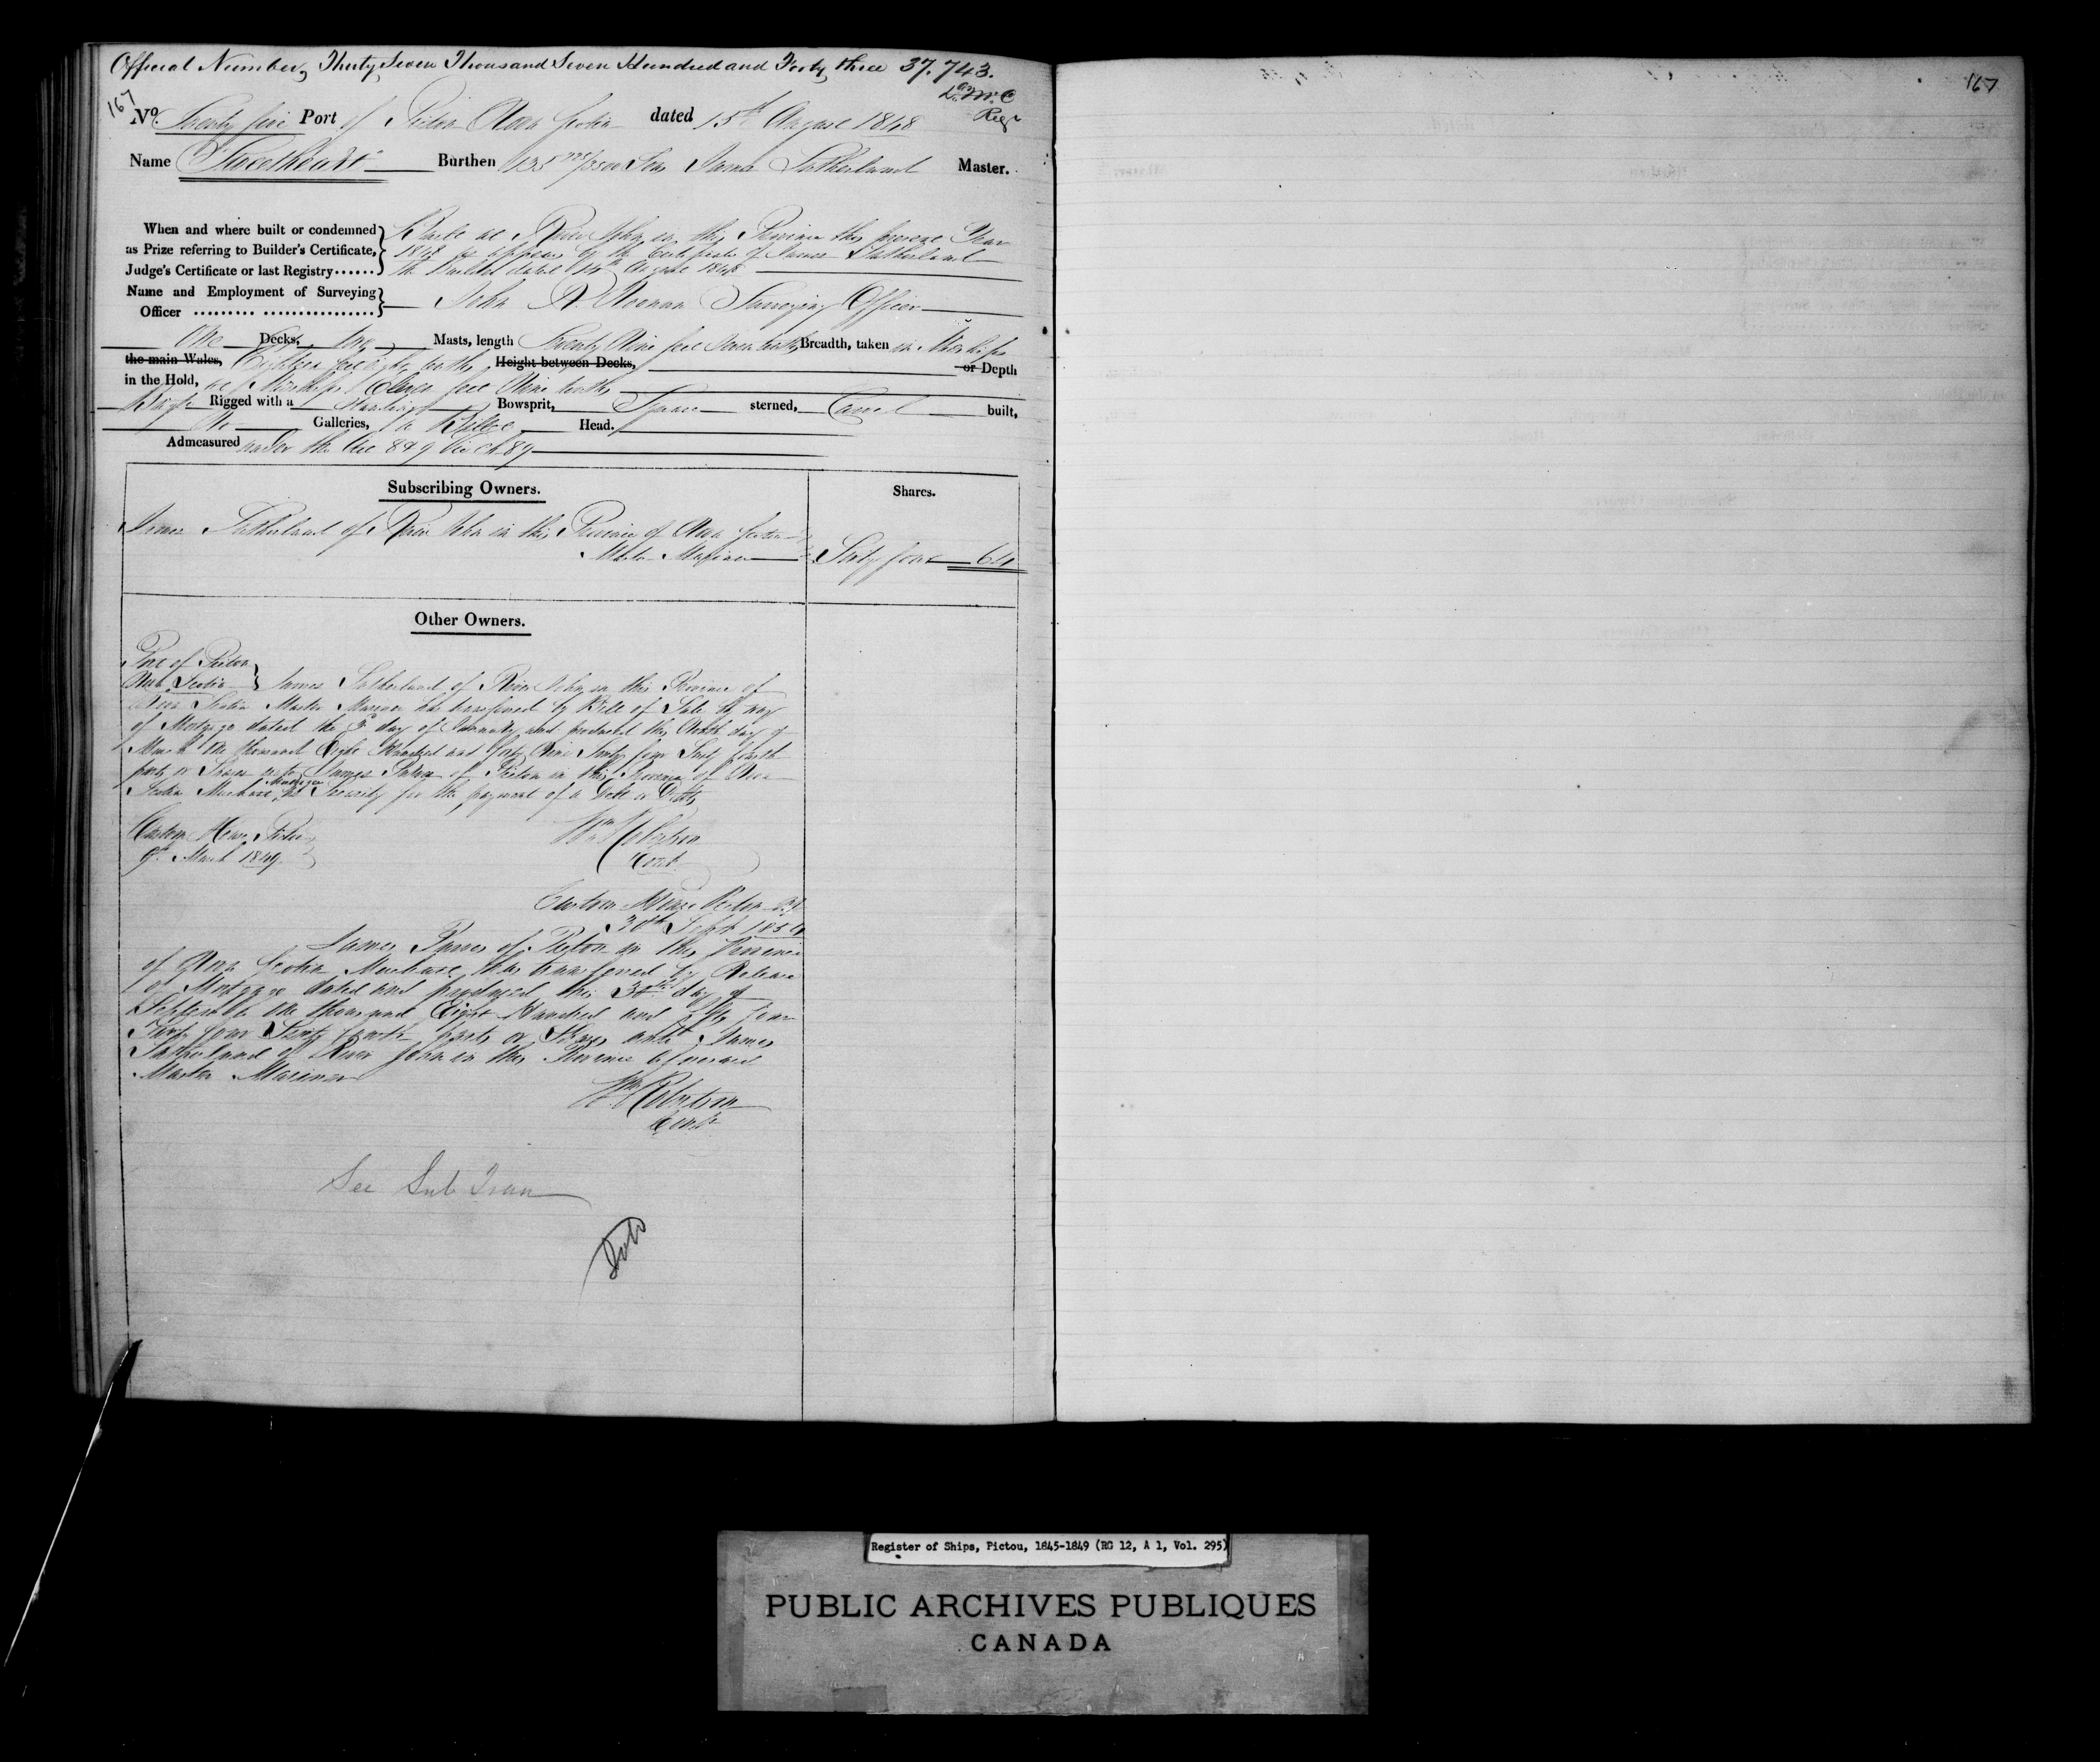 Official Number, Thirty Seven Thousand Seven Hundred and Forty three 37.743.
167
Regr
No. Twenty five Port of Pictou Nova Scotia dated 15th August 1848
Name "Sweetheart" Burthen Tons James Sutherland Master.
When and where built or condemned as Prize referring to Builder's Certificate, Judge's Certificate or last Registry......
Built at River John in this Province the present Year
1848 as appears by the Certificate of James Sutherland
the Builder dated 14th August 1848
Name and Employment of Surveying Officer ......... ................
John D. Noonan Surveying Officer
One Decks, Two Masts, length Seventy Nine feet Seven tenths Breadth, taken in Midships
the main Wales, Eighteen feet Eight tenths Height between Decks, or Depth
in the Hold, at Midships Eleven feet Nine tenths
Rigged with a Standing Bowsprit, Square sterned, Carvel built,
No Galleries, a Billet Head.
Admeasured under the Act 8 & 9 Vic Ch 89
Subscribing Owners.
Shares.
James Sutherland of River John in this Province of Nova Scotia
Master Mariner Sixty four 64
Other Owners.
Port of Pictou
Nova Scotia James Sutherland of River John in this Province of
Nova Scotia Master Mariner has transferred by Bill of Sale by way
of Mortgage dated the day of January and produced this Ninth day of
March One thousand Eight Hundred and forty Nine Sixty four Sixty fourth
parts or Shares unto James Purves of Pictou in this Province of Nova
Scotia Merchant Mortgagee as Security for the payment of a Debt or Debts
Custom House Pictou
9th March 1849
Wm Robertson
Cont
Custom House Pictou N.S.
30th Sept 1854
James Purves of Pictou in this Province
of Nova Scotia Merchant has transferred by Release
of Mortgage dated and produced this 30th day of
September One thousand Eight Hundred and fifty four
Sixty four Sixty fourth parts or Shares unto James
Sutherland of River John in this Province aforesaid
Master Mariner
Wm Robertson
Cont
See Sub Tran
167
Register of Ships, Pictou, 1845-1849 (RG 12, A 1, Vol. 295)
PUBLIC ARCHIVES PUBLIQUES
CANADA